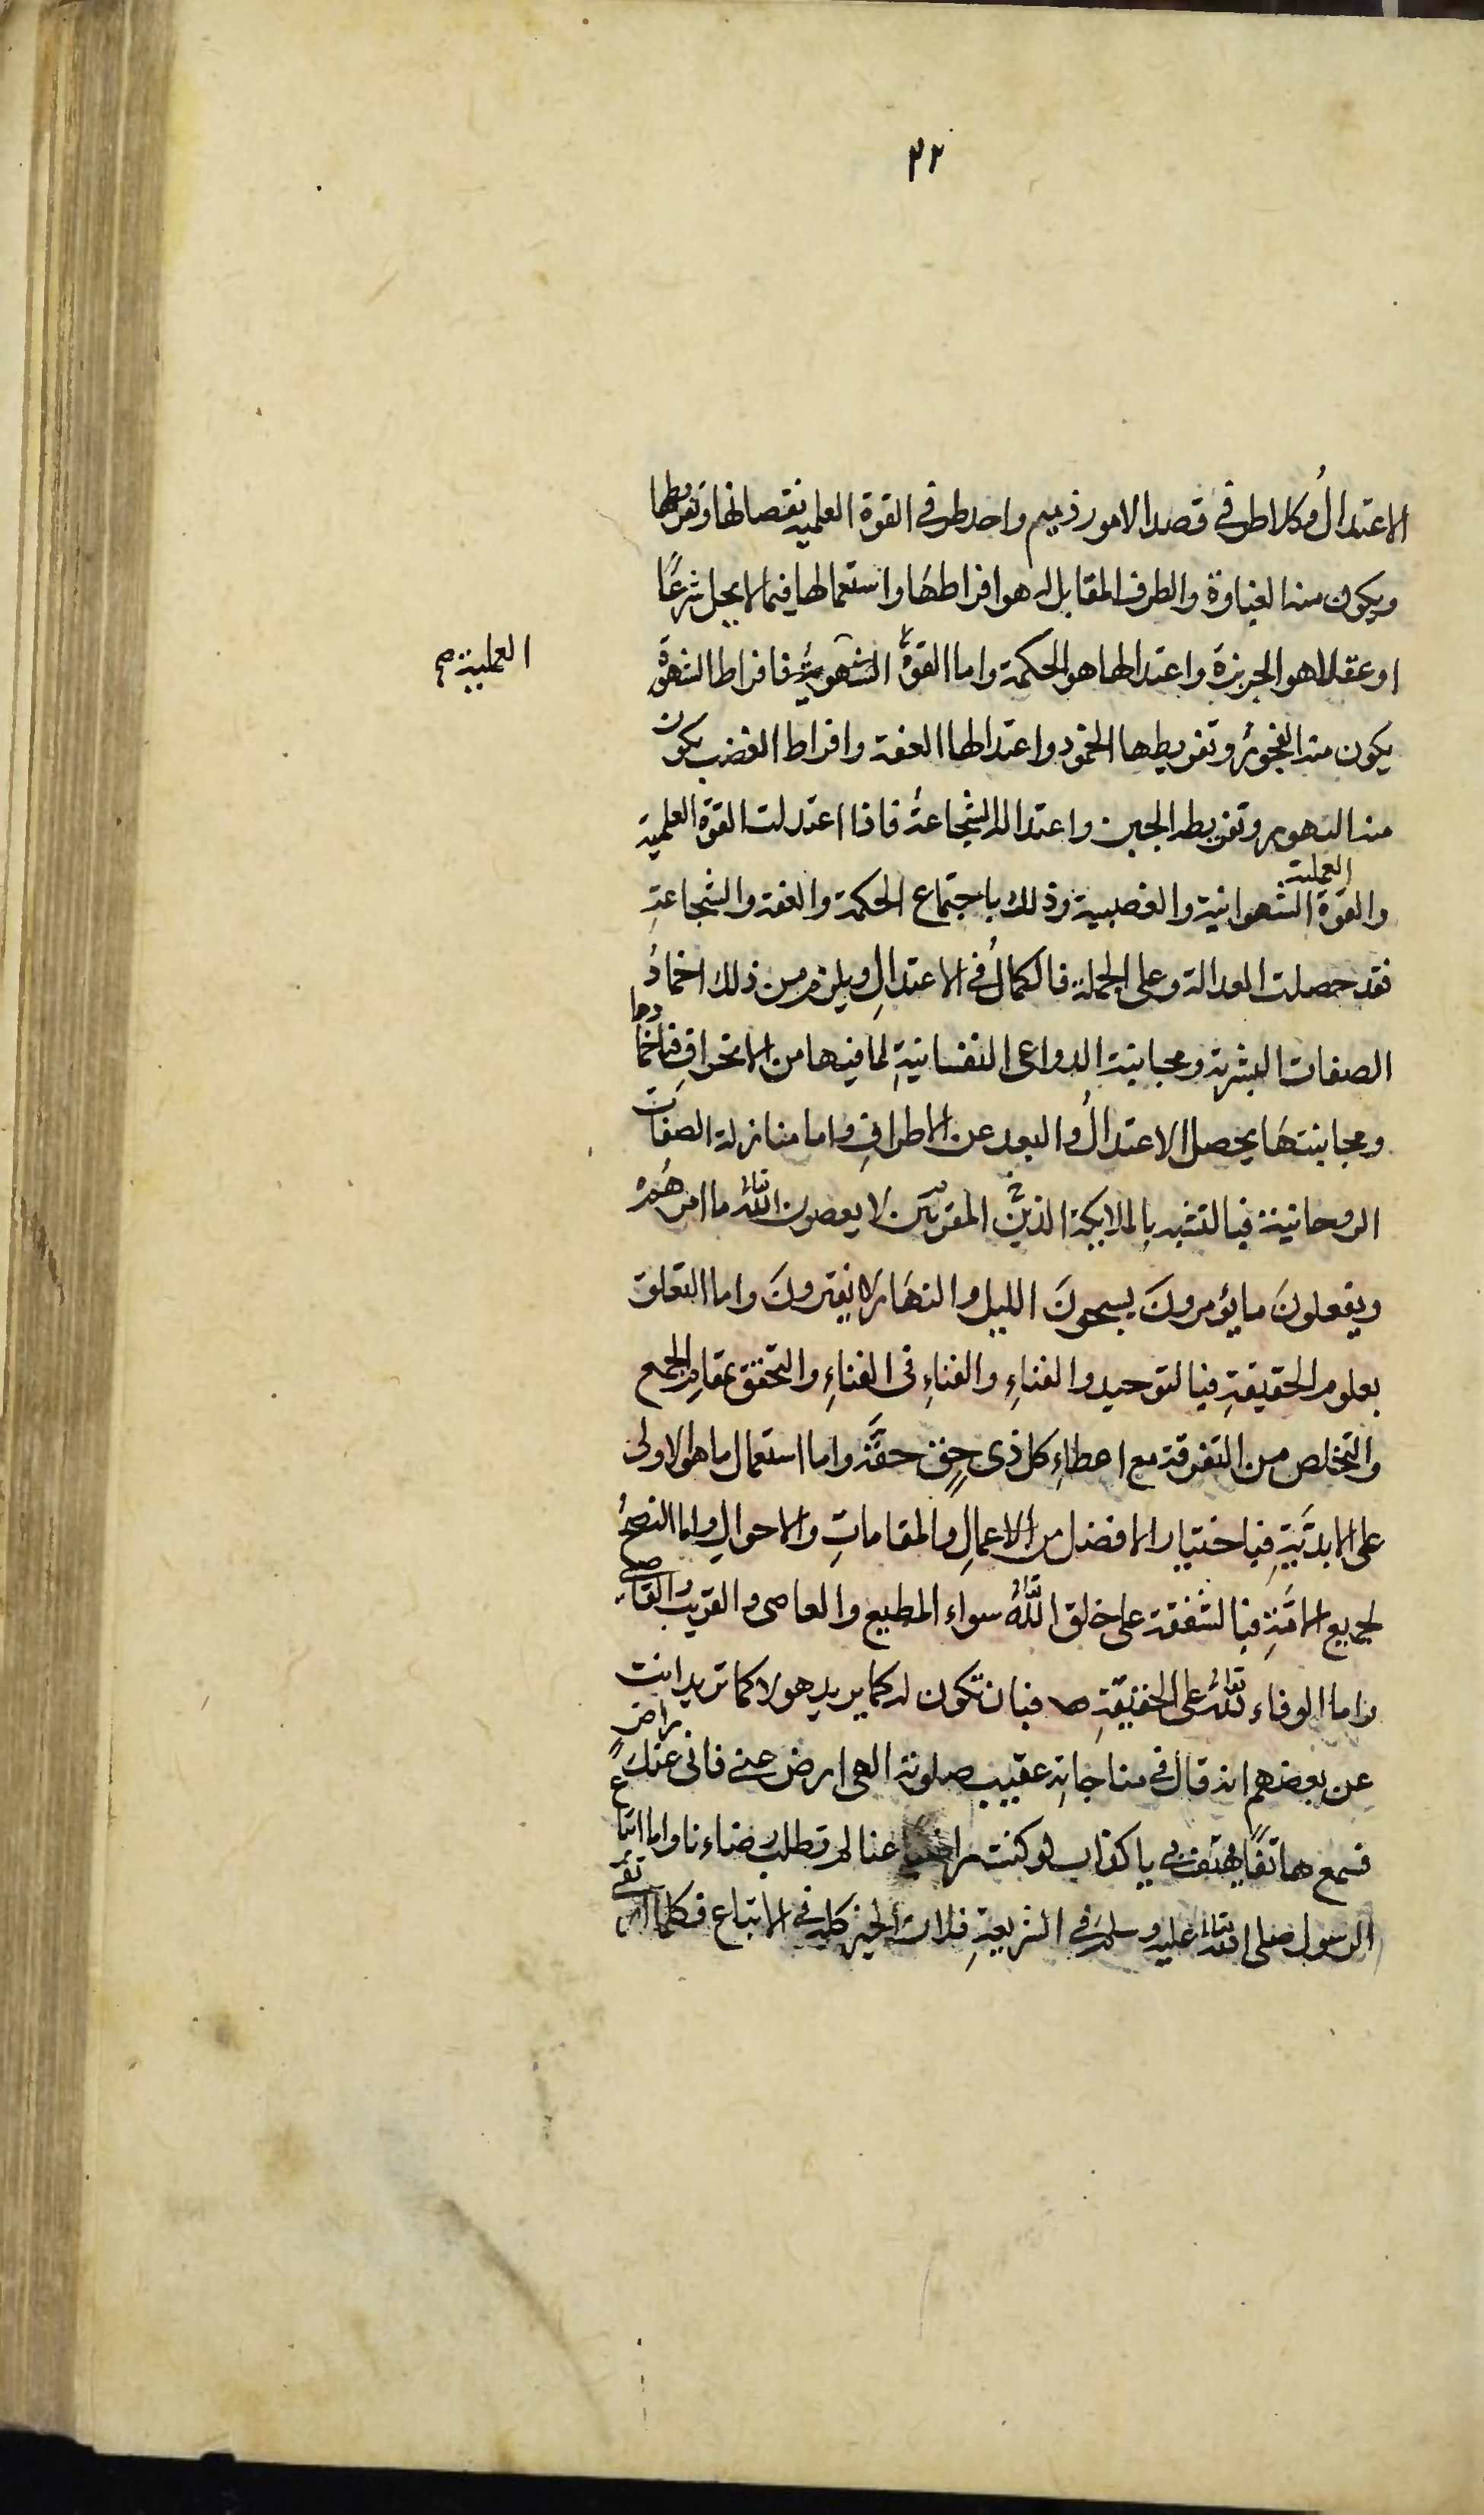 ٢٢
الاعتدالُ وكلا طرفى قصد الامور ذميم واحد طرفى القوة العلمية نقصانها وتفريطها
ويكون منه الغباوة والطرف المقابل له هو افراطها واستعمالها فيما لا يحل شرعًا
او عقلا هو الجربزة واعتدالها هو الحكمة واما القوة الشهوية فافراط الشهوة
العملية صح
يكون منه الفجور وتفريطها الخمود واعتدالها العفة وافراط الغضب يكون
منه التهور وتفريطه الجبن واعتداله الشجاعة فاذا اعتدلت القوة العلمية
العملية
والقوة الشهوانية والغضبية وذلك باجتماع الحكمة والعفة والشجاعةِ
فقد حصلت العدالة وعلى الجملة فالكمالُ فى الاعتدالِ ويلزم من ذلك اخمادُ
الصفات البشرية ومجانبة الدواعى النفسانيةِ لما فيها من الانحرافِ فباخمادها
ومجانبتها يحصل الاعتدالُ والبعد عن الاطرافِ واما منازلة الصفات
الروحانية فبالتشبه بالملائكة الذين المقربين لا يعصون اللهَ تعالى ما امرهُم
ويفعلونَ ما يؤمرونَ يسبحونَ الليل والنهَار لا يفترونَ واما التعلق
بعلوم الحقيقةِ فبالتوحيد والفناءِ والفناءِ فى الفناءِ والتحقق بمقامِ الجمع
والتخلص من التفرقة مع اعطاءِ كل ذى حقٍ حقَّه واما استعمال ما هو الاولى
على الابديَّةِ فباختيار الافضل من الاعمالِ والمقاماتِ والاحوالِ واما النصحُ
لجميع الامَّةِ فبالشفقة على خلق اللهِ تعالى سواء المطيع والعاصى والقريب والقاصى
واما الوفاء للهِ تعالى على الحقيقةِ فبان تكون له كما يريد هو لا كما تريد انت
عن بعضهم انه قال فى مناجاته عقيب صلوته الهى ارض عنى فانى عنكَ راضٍ
فسمع هاتفًا يهتف به يا كذاب لو كنت راضيًا عنا لم تطلب رضاءنا واما اتباع
الرسول صلى الله تعالى عليه وسلم فى الشريعةِ فلان الخير كله فى الاتباع فكلما ارتقى